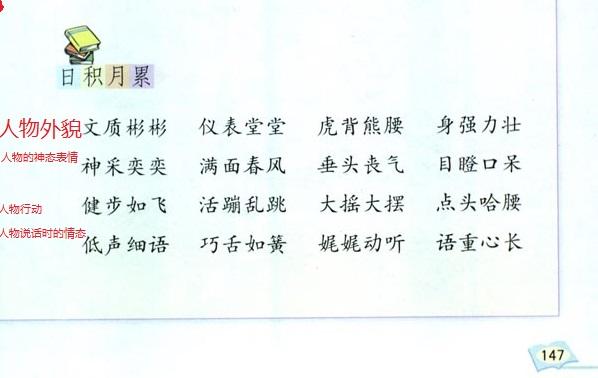 日积月累
人物外貌 文质彬彬 仪表堂堂 虎背熊腰 身强力壮
人物的神态表情 神采奕奕 满面春风 垂头丧气 目瞪口呆
人物行动 健步如飞 活蹦乱跳 大摇大摆 点头哈腰
人物说话时的情态 低声细语 巧舌如簧 娓娓动听 语重心长
147